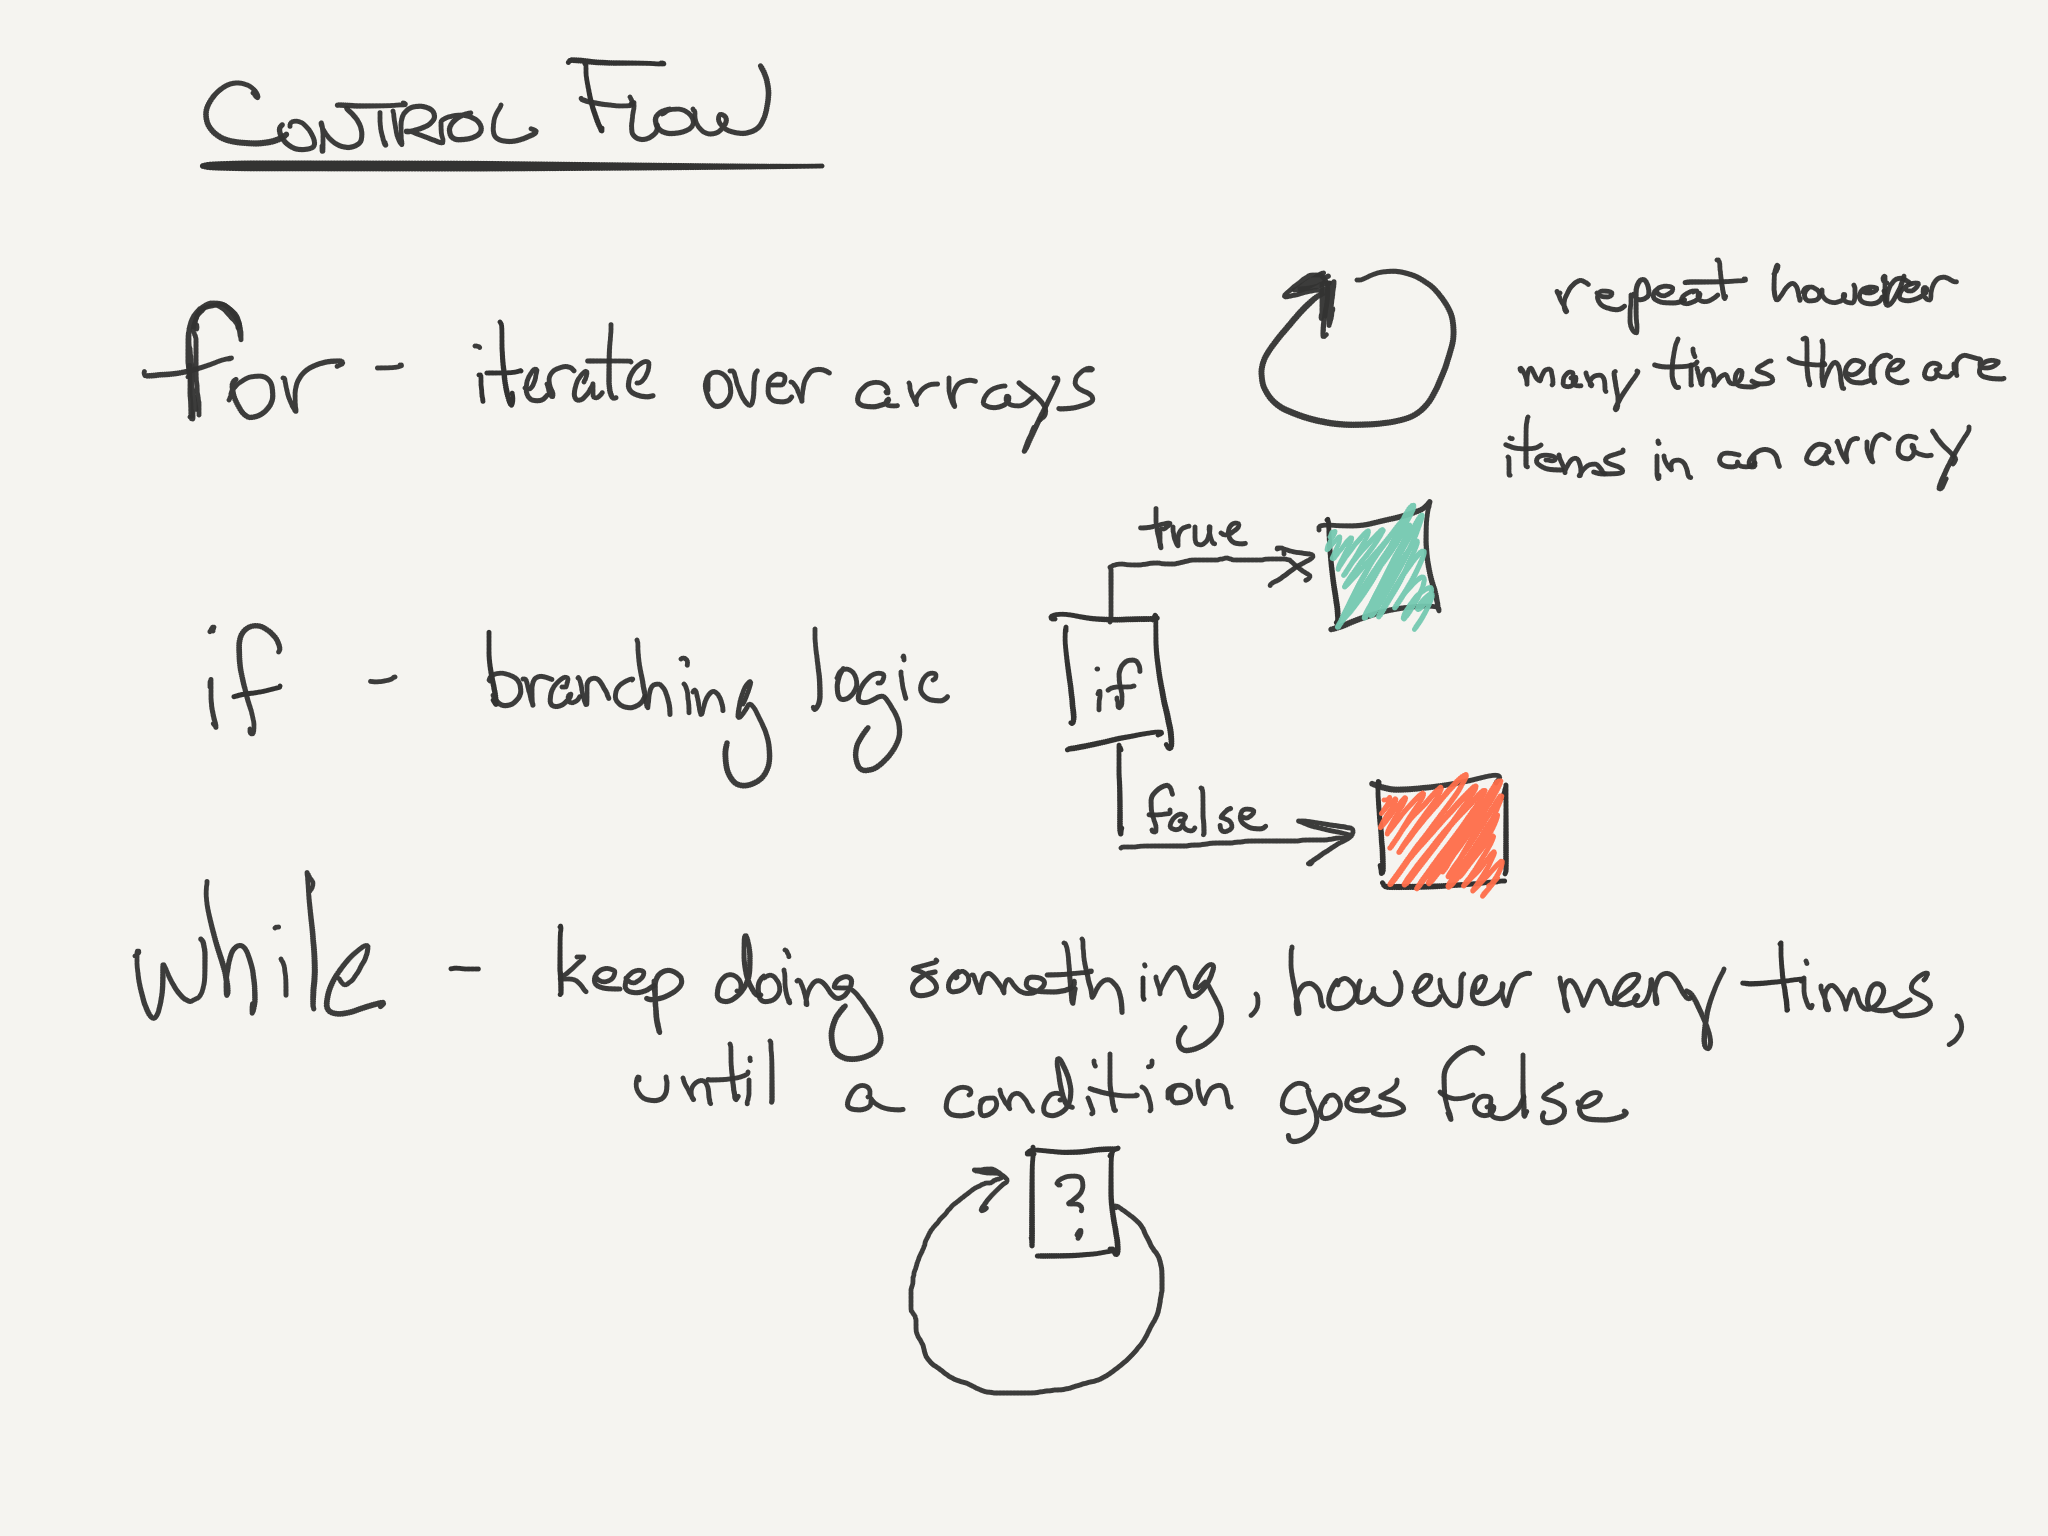 Control Flow
for - iterate over arrays
repeat however
many times there are
items in an array
if - branching logic
true
if
false
while - keep doing something, however many times,
until a condition goes false
?